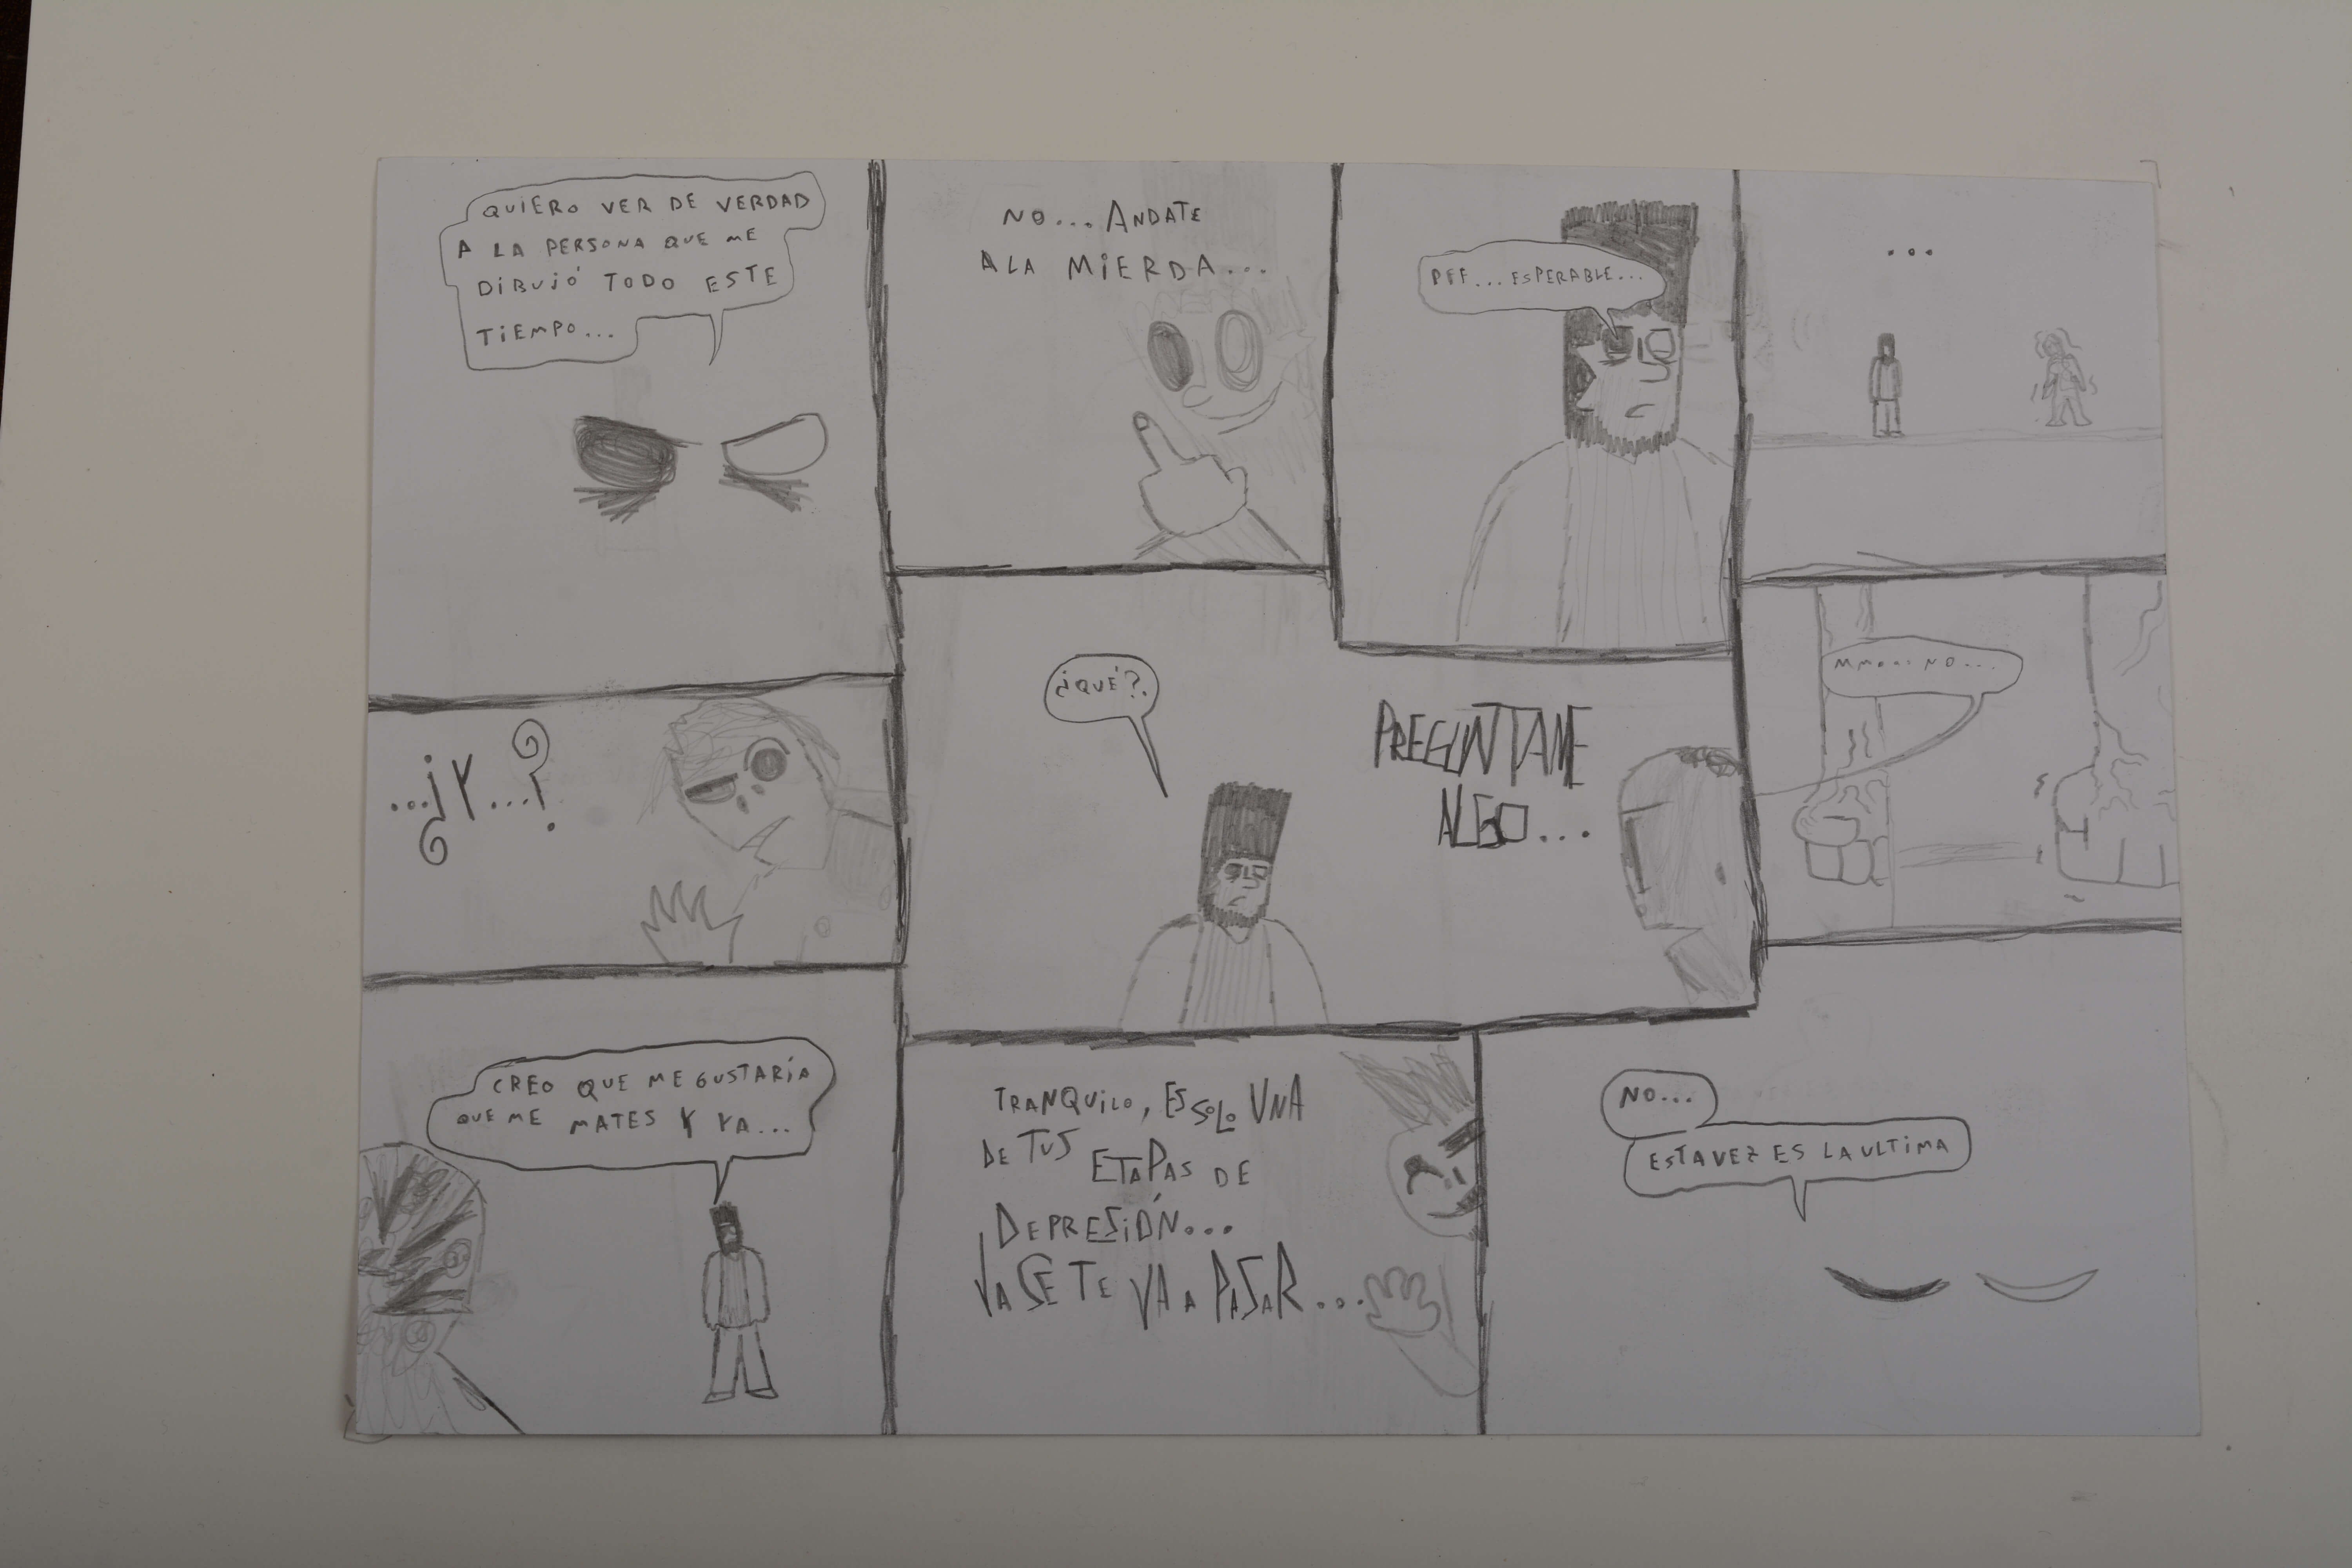 QUIERO VER DE VERDAD
A LA PERSONA QUE ME
DIBUJÓ TODO ESTE
TIEMPO...
NO... ANDATE
A LA MIERDA...
PFF... ESPERABLE...
...
...¿Y...?
¿QUÉ?.
PREGUNTAME
ALGO...
NO...
CREO QUE ME GUSTARÍA
QUE ME MATES Y YA...
TRANQUILO, ES SOLO UNA
DE TUS ETAPAS DE
DEPRESIÓN...
YA SE TE VA A PASAR...
NO...
ESTA VEZ ES LA ULTIMA